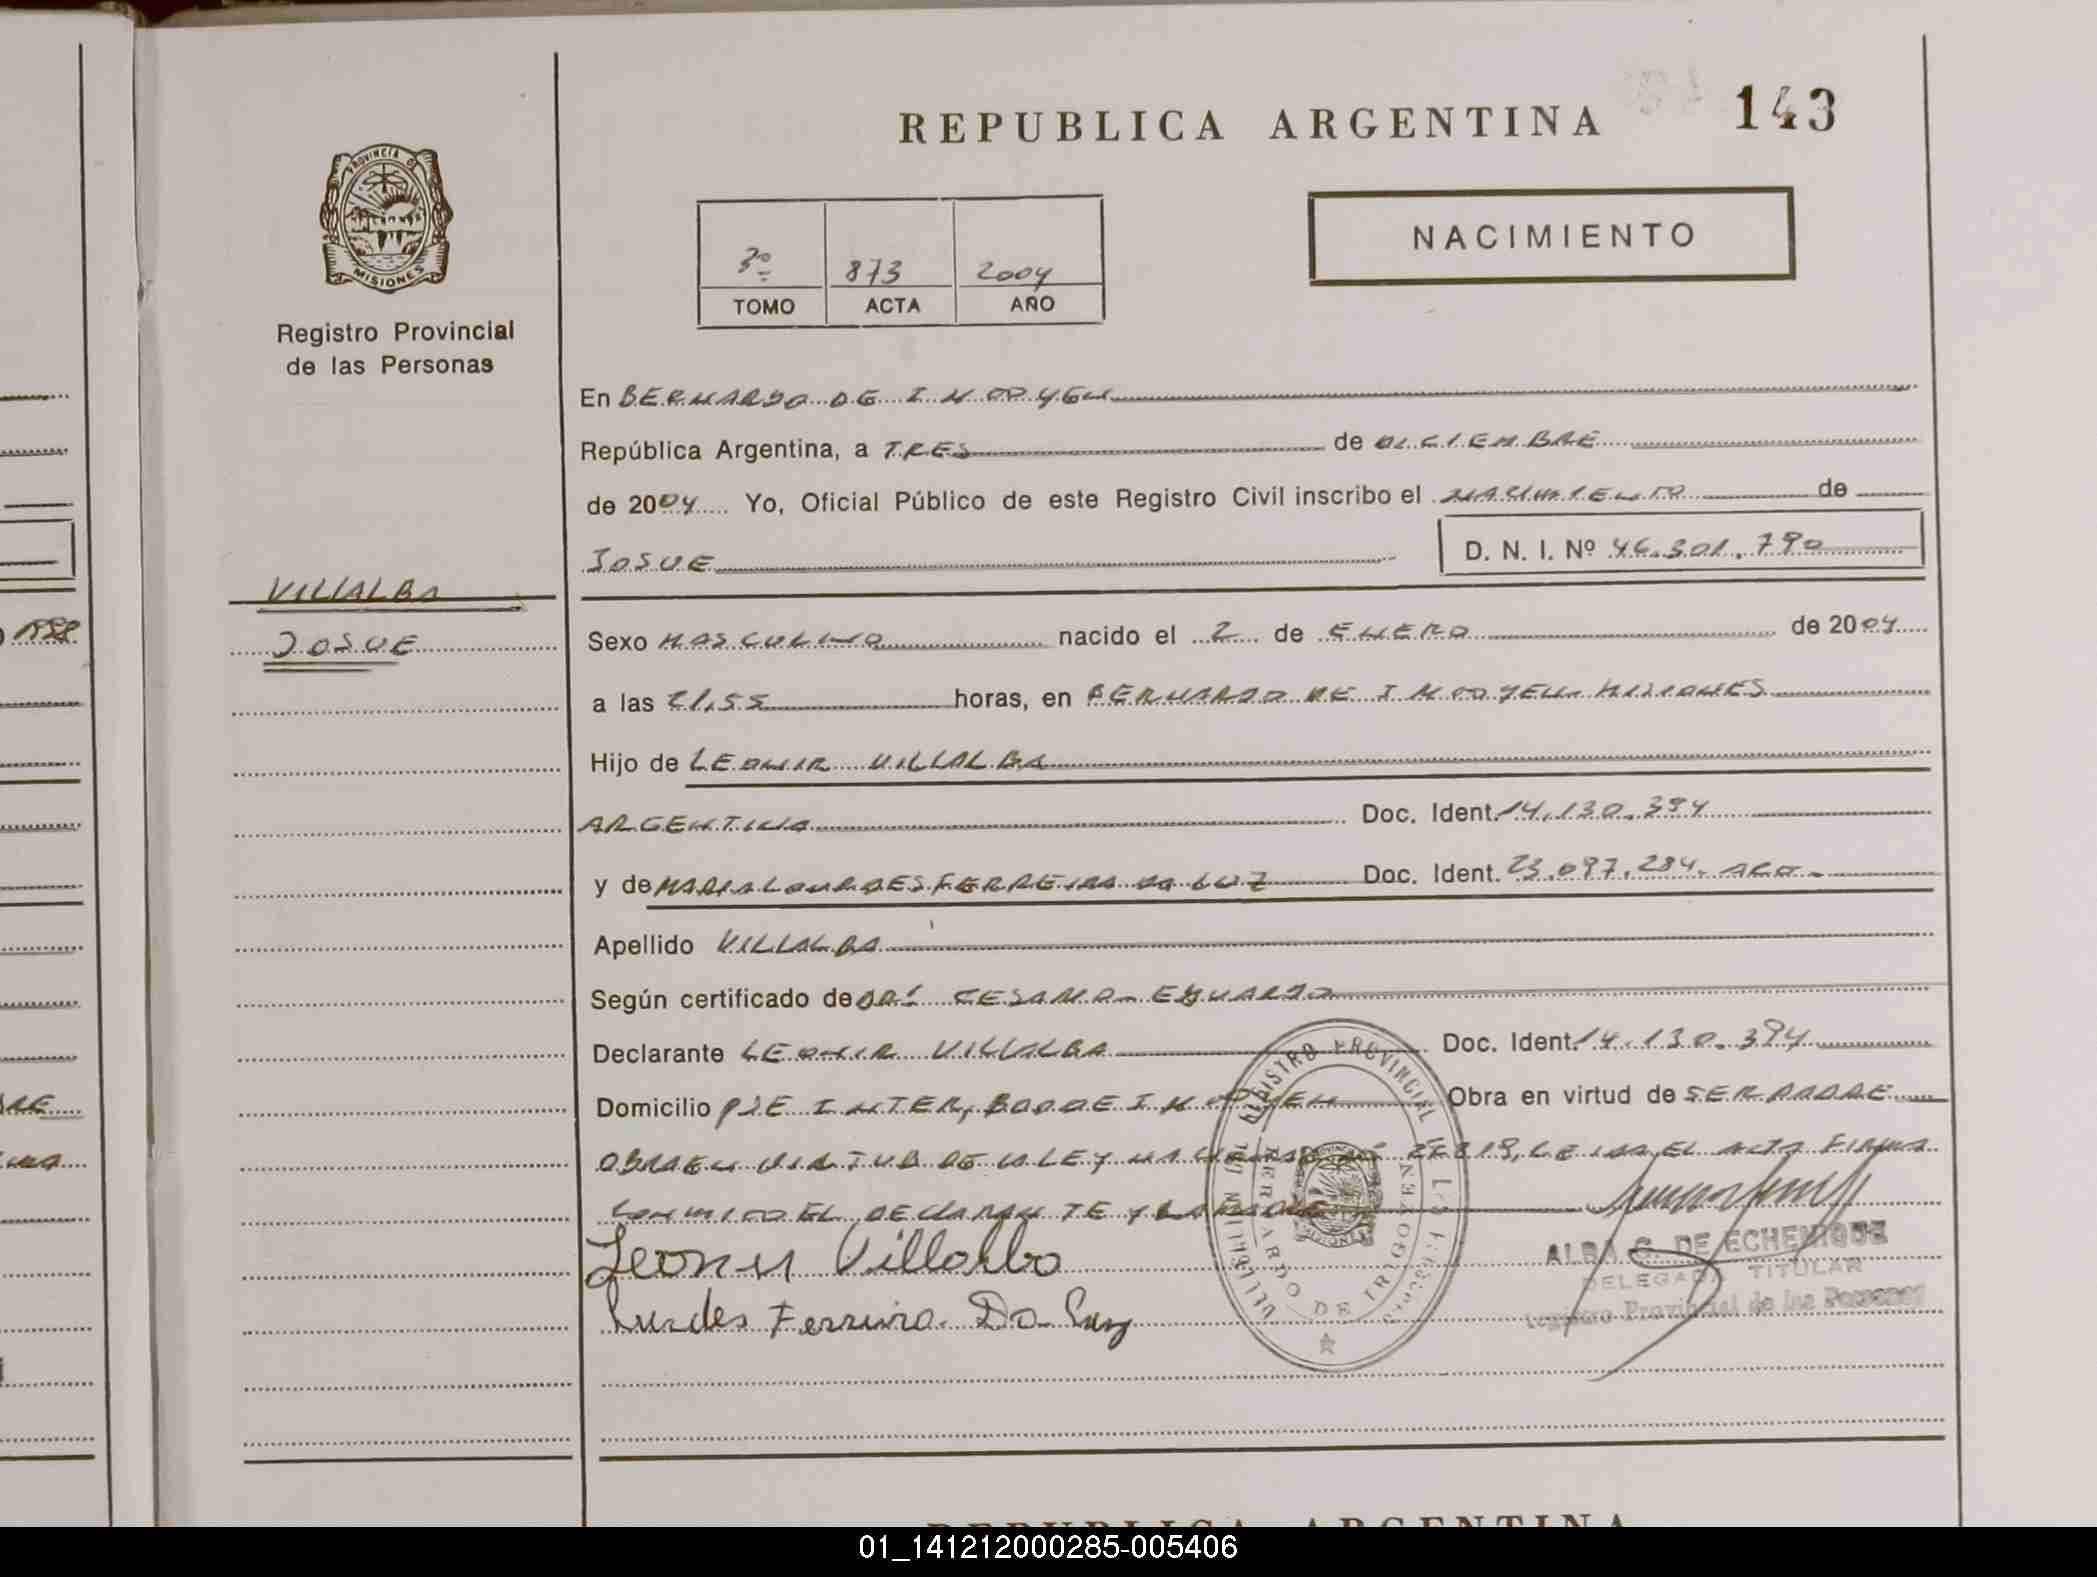 REPUBLICA ARGENTINA 143
PROVINCIA D
MISIONES
Registro Provincial
de las Personas
3º 873 2004
TOMO ACTA AÑO
NACIMIENTO
En BERNARDO DE IRIGOYEN
República Argentina, a TRES de DICIEMBRE
de 2004 Yo, Oficial Público de este Registro Civil inscribo el NACIMIENTO de
JOSUE D. N. I. Nº 46.301.790
VILLALBA
JOSUE
1998
Sexo MASCULINO nacido el 2 de ENERO de 2004
a las 21,55 horas, en BERNARDO DE IRIGOYEN MISIONES
Hijo de LEONIR VILLALBA
ARGENTINA Doc. Ident. 14.130.394
y de MARIA LOURDES FERREIRA DA LUZ Doc. Ident. 23.097.284. ARG.
Apellido VILLALBA
Según certificado de DR. CESARO EDUARDO
Declarante LEONIR VILLALBA Doc. Ident. 14.130.394
Domicilio PJE INTER, BDO DE IRIGOYEN Obra en virtud de SER PADRE
OBRA EN VIRTUD DE LA LEY NACIONAL Nº LEIDA EL ACTA FIRMA
CONMIGO EL DECLARANTE Y LA MADRE
Leonir Villalba
Lurdes Ferreira Da Luz
REGISTRO PROVINCIAL DE LAS PERSONAS
BERNARDO DE IRIGOYEN
ALBA G. DE ECHENIQUE
DELEGADA TITULAR
Registro Provincial de las Personas
REPUBLICA ARGENTINA
01_141212000285-005406